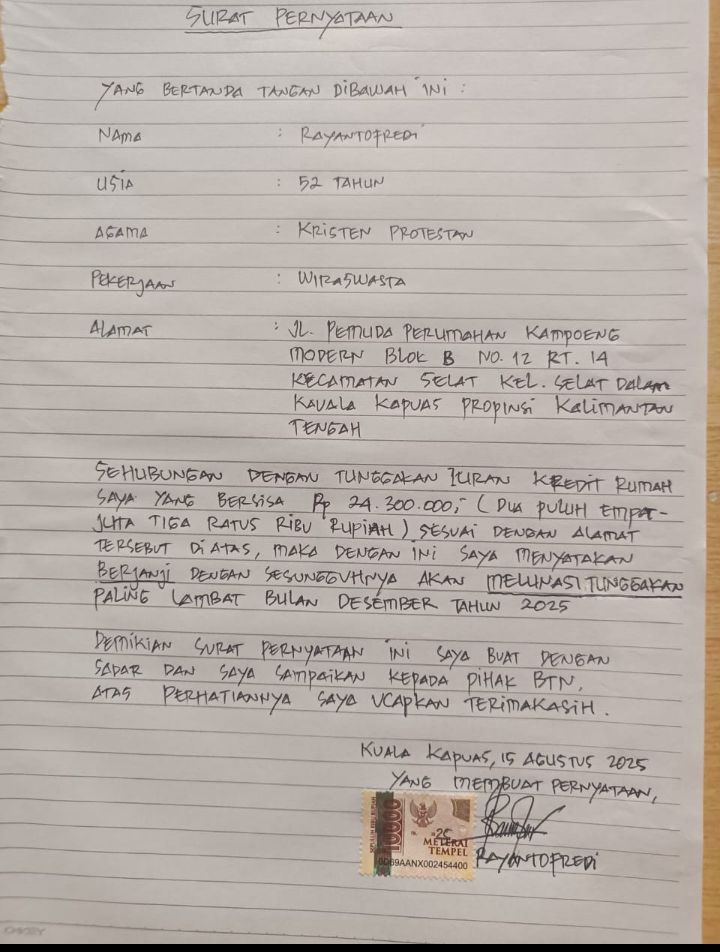 SURAT PERNYATAAN
YANG BERTANDA TANGAN DIBAWAH INI :
NAMA : RAYANTOFREDI
USIA : 52 TAHUN
AGAMA : KRISTEN PROTESTAN
PEKERJAAN : WIRASWASTA
ALAMAT : JL. PEMUDA PERUMAHAN KAMPOENG
MODERN BLOK B NO. 12 RT. 14
KECAMATAN SELAT KEL. SELAT DALAM
KAUALA KAPUAS PROPINSI KALIMANTAN
TENGAH
SEHUBUNGAN DENGAN TUNGGAKAN IURAN KREDIT RUMAH
SAYA YANG BERSISA Rp 24.300.000,- ( DUA PULUH EMPAT-
JUTA TIGA RATUS RIBU RUPIAH ) SESUAI DENGAN ALAMAT
TERSEBUT DIATAS, MAKA DENGAN INI SAYA MENYATAKAN
BERJANJI DENGAN SESUNGGUHNYA AKAN MELUNASI TUNGGAKAN
PALING LAMBAT BULAN DESEMBER TAHUN 2025
DEMIKIAN SURAT PERNYATAAN INI SAYA BUAT DENGAN
SADAR DAN SAYA SAMPAIKAN KEPADA PIHAK BTN,
ATAS PERHATIANNYA SAYA UCAPKAN TERIMAKASIH.
KUALA KAPUAS, 15 AGUSTUS 2025
YANG MEMBUAT PERNYATAAN,
10000
METERAI
TEMPEL
0D69AANX002454400
RAYANTOFREDI